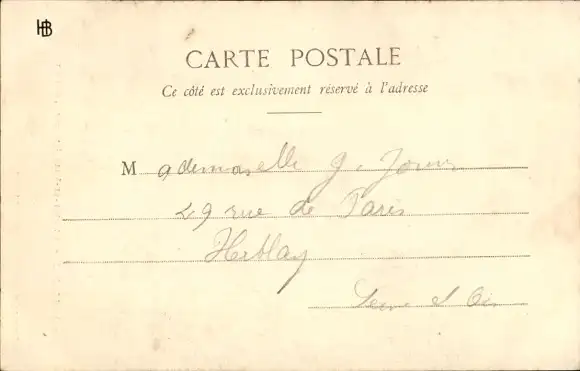 HB
CARTE POSTALE
Ce côté est exclusivement réservé à l'adresse
Mademoiselle G.
29 rue de Paris
Herblay
Seine et Oise